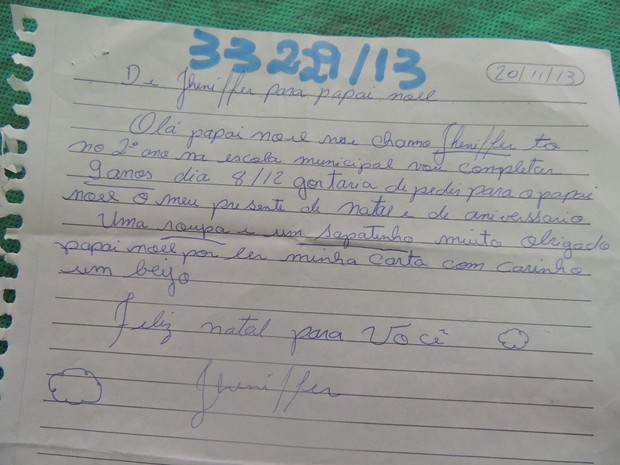 33229/13
20/11/13
De Jheniffer para papai noel
Olá papai noel me chamo Jheniffer to
no 2º ano na escola municipal vou completar
9 anos dia 8/12 gostaria de pedir para o papai
noel o meu presente de natal e de aniverssario
Uma roupa e um sapatinho muito obrigado
papai noel por ler minha carta com carinho
um beijo
Feliz natal para Você
Jheniffer